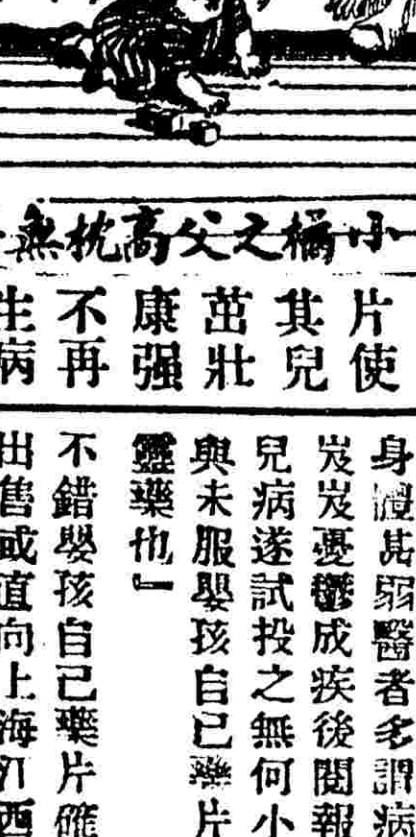 小橘之父高枕無
片使
其兒
茁壯
康强
不再
生病
身體甚弱醫者多謂病
岌岌憂鬱成疾後閱報
兒病遂試投之無何小
與未服嬰孩自已藥片
靈藥也』
不錯嬰孩自己藥片確
出售或直向上海江西